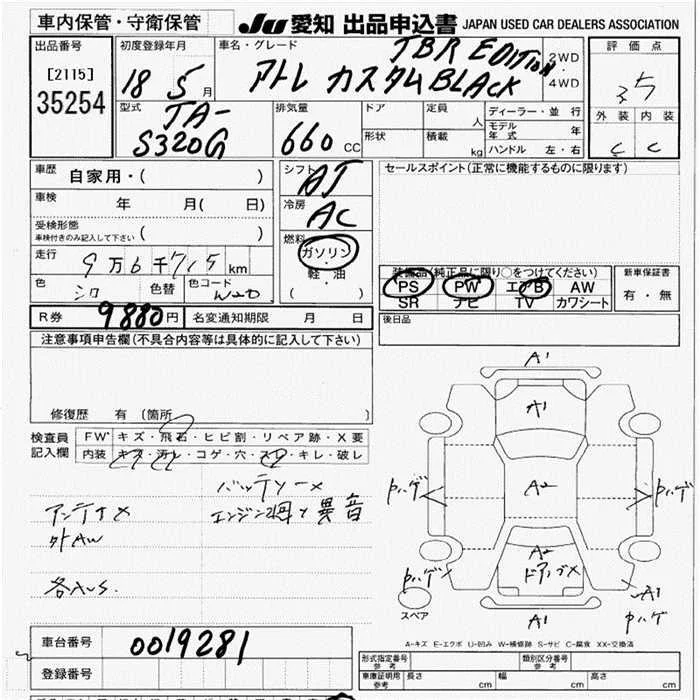 車内保管・守衛保管
JU 愛知 出品申込書 JAPAN USED CAR DEALERS ASSOCIATION
出品番号
[2115]
35254
初度登録年月
18 5月
車名・グレード
TBR EDITION
アトレ カスタム BLACK
2WD
・
4WD
評価点
3.5
外装 内装
C C
型式
TA-
S320G
排気量
660 CC
ドア
定員 人
形状
積載 kg
ディーラー・並行
モデル年式 年
ハンドル 左・右
車歴
自家用・( )
車検 年 月( 日)
受検形態
車検付きのみ記入して下さい ( )
走行 9万6千715km
色 シロ 色替 色コード W20
シフト AT
冷房 AC
燃料
ガソリン
・
軽・油
( )
セールスポイント(正常に機能するものに限ります)
装備品(純正品に限り○をつけてください)
PS PW エアB AW
SR ナビ TV カワシート
新車保証書
有・無
R券 9880円 名変通知期限 月 日
後日品
注意事項申告欄(不具合内容等は具体的に記入して下さい)
修復歴 有 (箇所 )
検査員
記入欄
FW キズ・飛石・ヒビ割・リペア跡・X要
内装 キズ・汚レ・コゲ・穴・スレ・キレ・破レ
バッテリー×
アンテナ× エンジン 異音
外AW
各AUS.
A1
A1
A2
A2
ドアップ×
A1
A1
スペア
A=キズ E=エクボ U=凹み W=補修跡 S=サビ C=腐食 XX=交換済
車台番号 0019281
登録番号
形式指定番号
参考
類別区分番号
参考
車庫証明用
参考
長さ cm
幅 cm
高さ cm